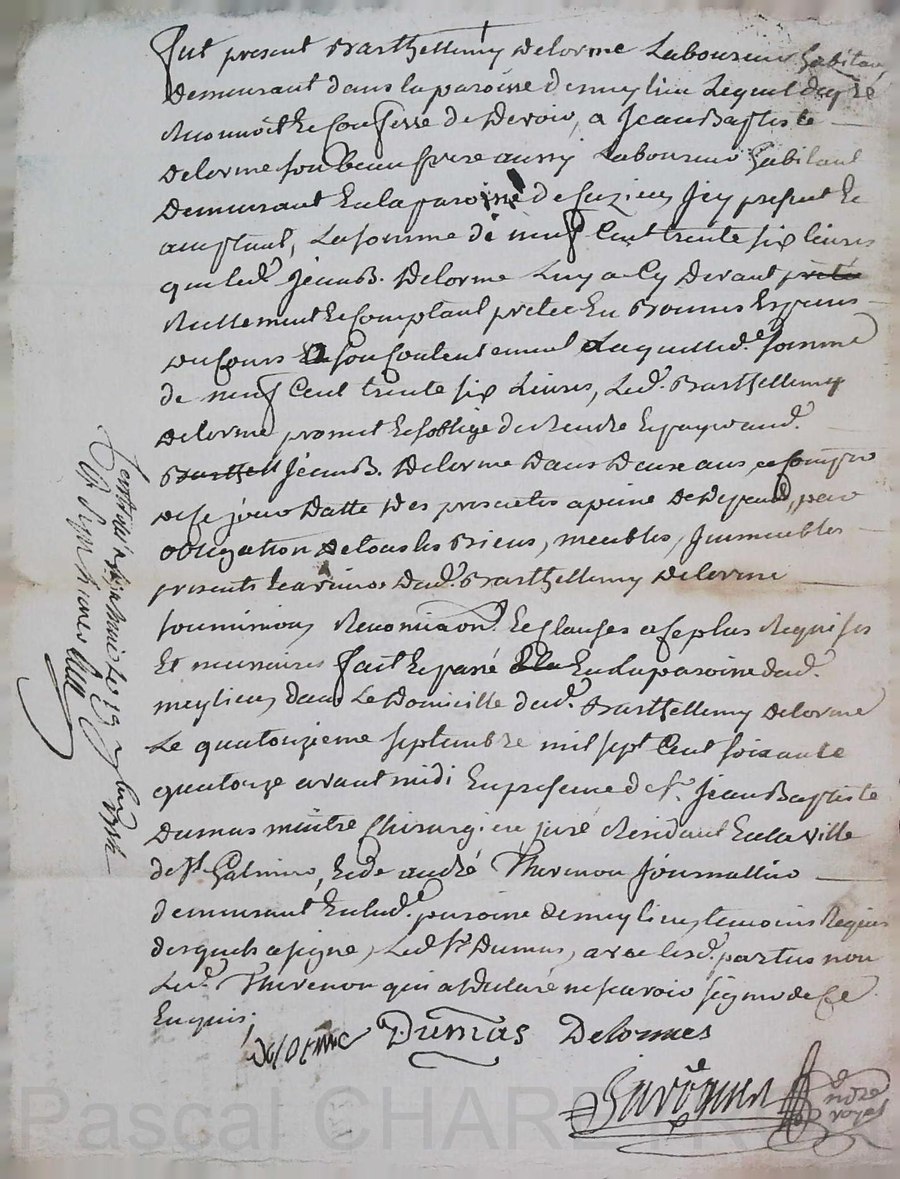 Fut present Barthellemy Delorme Laboureur habitan
Demeurant dans la paroisse de meylieu Lequel de gré
Reconnoit Et Confesse de Devoir, a Jean Baptiste
Delorme son beau frere aussy Laboureur habitant
Demeurant En la paroisse de Cuzieu Icy present Et
acceptant, La somme de neuf Cent trente six livres
que led. Jean B. Delorme Luy a Cy Devant
Reellement Et Comptant pretée En Bonnes Especes
Du Cours a son Contentement Laquelle d.e somme
de neuf Cent trente six Livres, Led. Barthellemy
Delorme promet Et s'oblige de Rendre Et payer aud.
Jean B. Delorme Dans Deux ans a Compter
De Ce jour Datte Des presentes a peine De Depens, par
obligation De tous les Biens, meubles, Immeubles
presents Et avenir Dud. Barthellemy Delorme
soumissions Renonciaon. Et Clauses a Ce plus Requises
Et necessaires fait Et passé En la paroisse dud.
meylieu dans Le Domicille dud. Barthellemy Delorme
Le quatorzieme septembre mil sept Cent soixante
quatorze avant midi En presence de Sr. Jean Baptiste
Dumas maitre Chirurgien juré Residant En la ville
de St Galmier, Et de andré Thevenon Journallier
demeurant En lad.e paroisse de meylieu temoins Requis
desquels a signé, Led Sr Dumas, avec lesd. parties non
Led. Thevenon qui a Declaré ne scavoir signer de Ce
Enquis.
delorme Dumas Delormes
nore
royal
Pascal CHAR